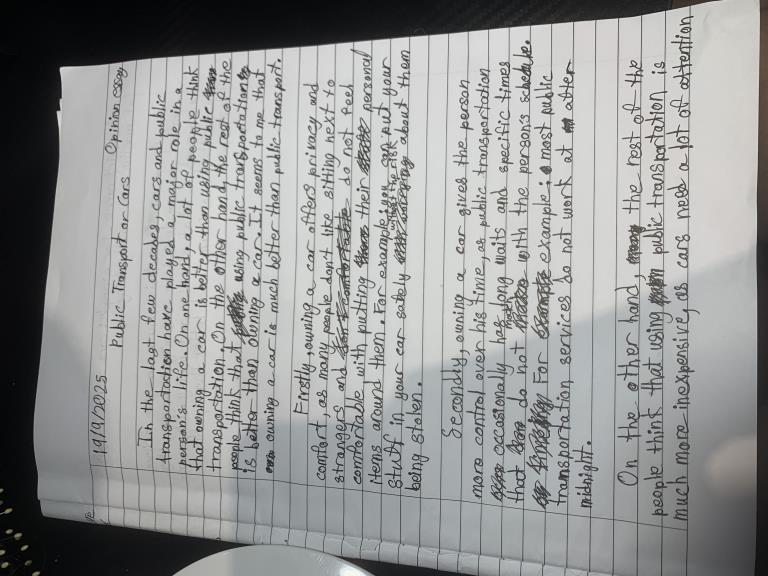 19/9/2025
Public Transport or Cars Opinion essay
In the last few decades, cars and public
transportation have played a major role in a
person's life. On one hand, a lot of people think
that owning a car is better than using public
transportation. On the other hand, the rest of the
people think that using public transportation
is better than owning a car. It seems to me that
owning a car is much better than public transport.
Firstly, owning a car offers privacy and
comfort, as many people don't like sitting next to
strangers and do not feel
comfortable with putting their personal
items around them. For example, you can put your
stuff in your car safely without the risk about them
being stolen.
Secondly, owning a car gives the person
more control over his time, as public transportation
occasionally has long waits and specific times
that do not match with the person's schedule.
For example, most public
transportation services do not work at after
midnight.
On the other hand, the rest of the
people think that using public transportation is
much more inexpensive, as cars need a lot of attention